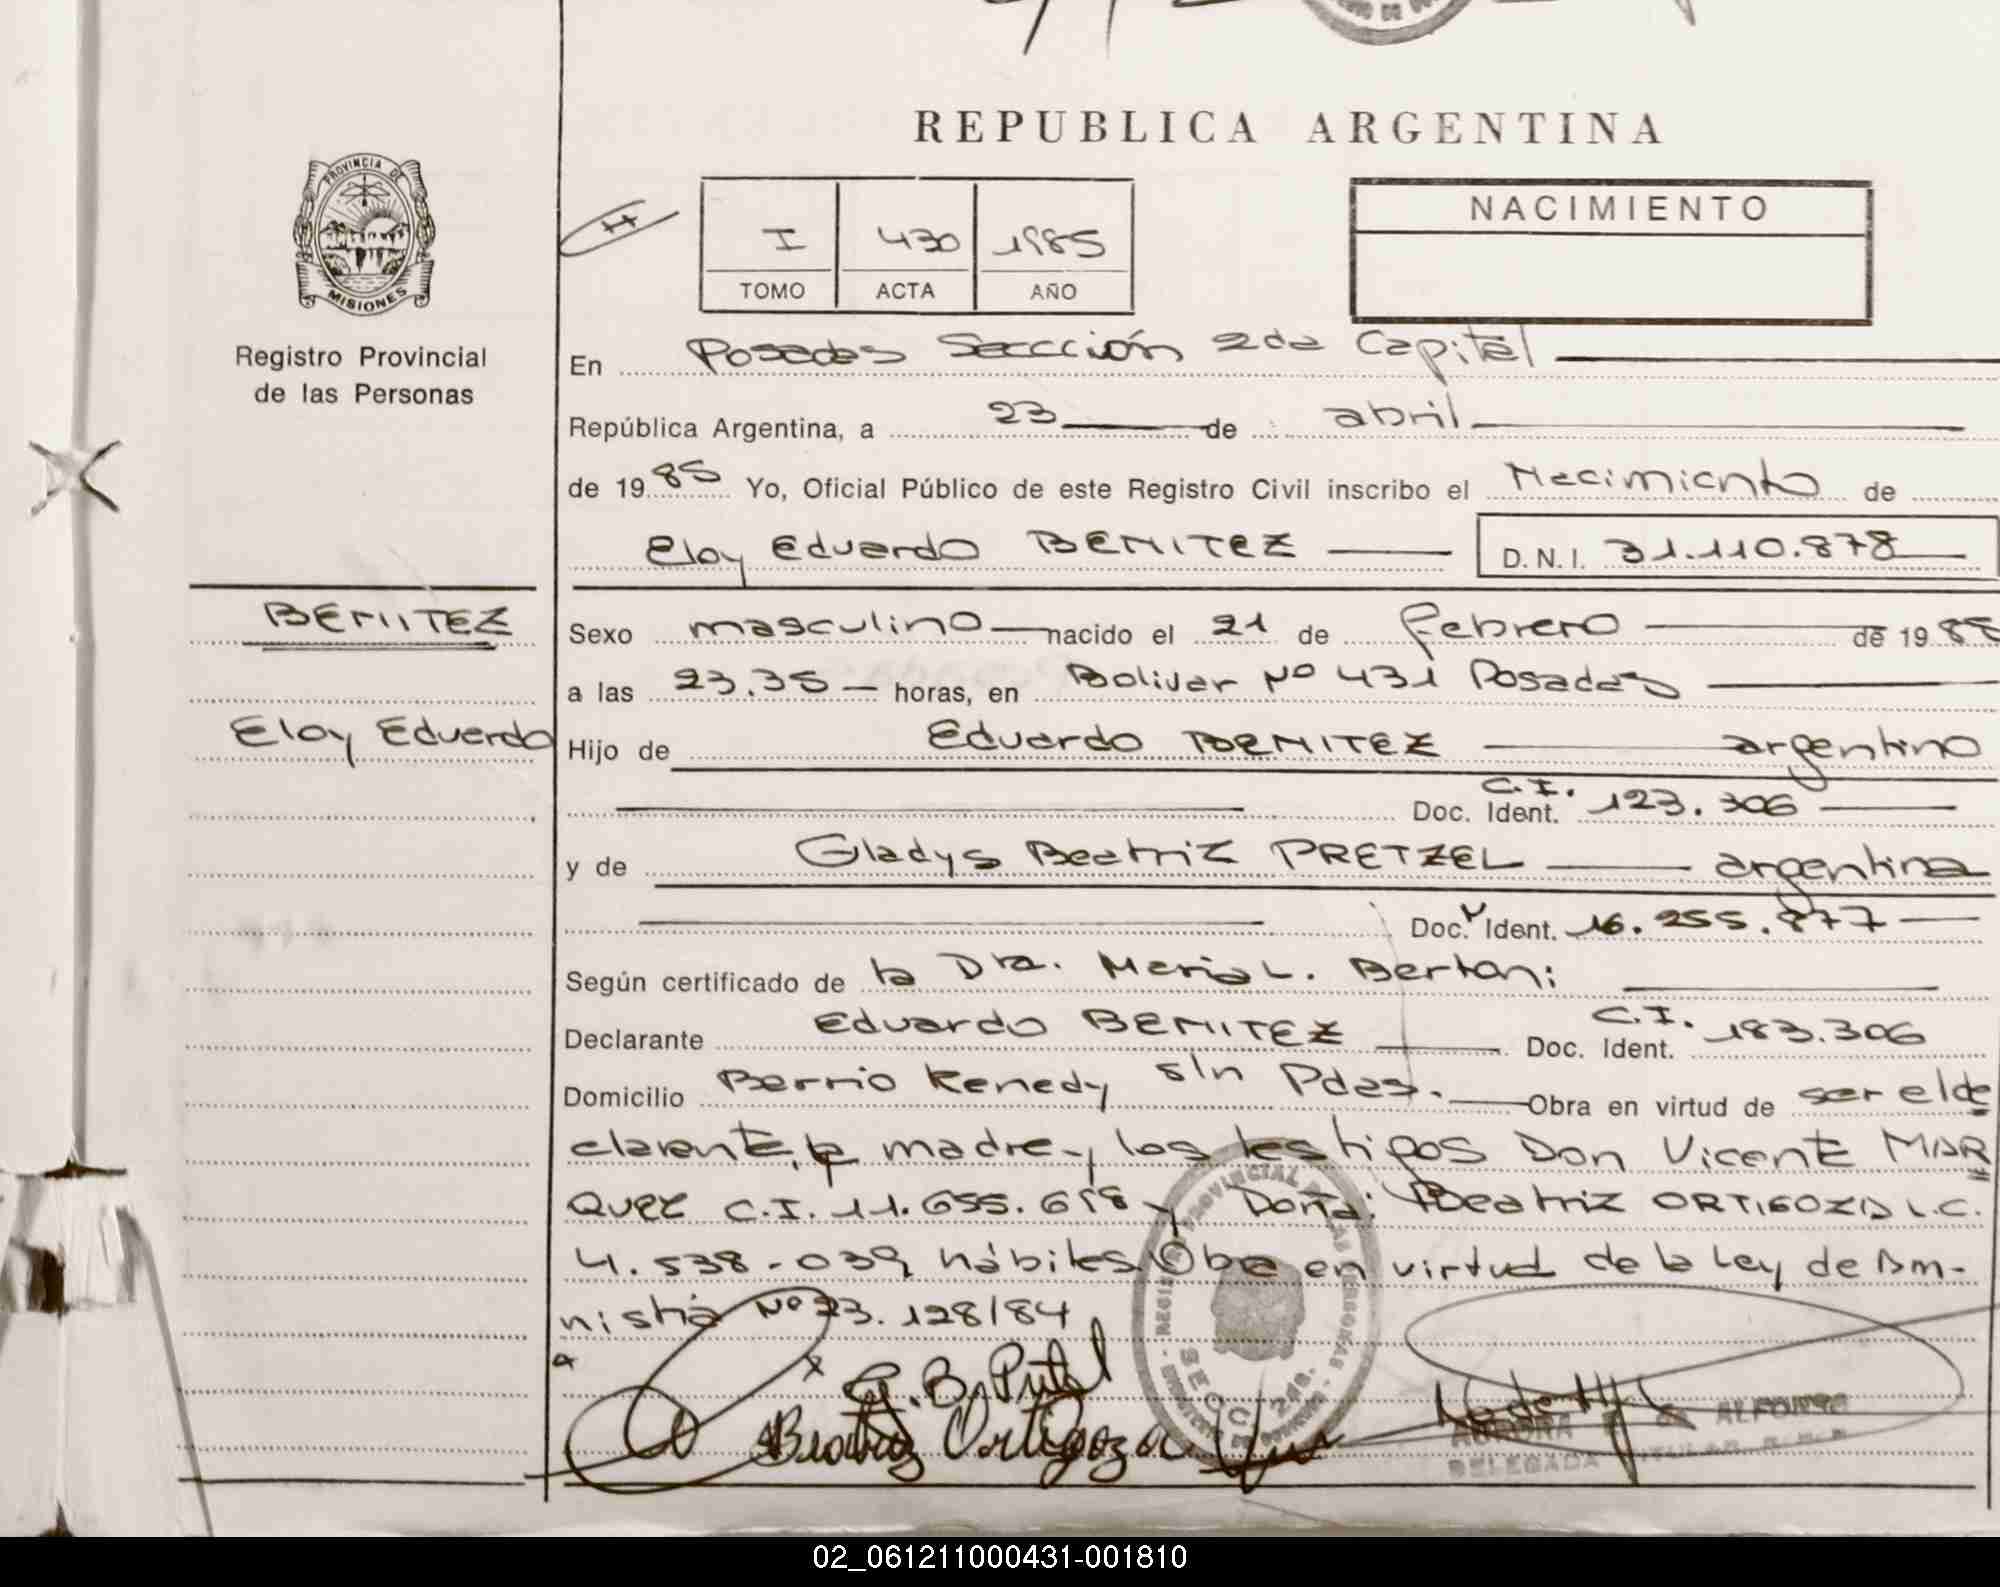 REPUBLICA ARGENTINA
PROVINCIA DE
MISIONES
Registro Provincial
de las Personas
H
I 430 1985
TOMO ACTA AÑO
NACIMIENTO
En Posadas Seccción 2da Capital
República Argentina, a 23 de abril
de 1985 Yo, Oficial Público de este Registro Civil inscribo el Nacimiento de
Eloy Eduardo BENITEZ D.N.I. 31.110.878
BENITEZ
Eloy Eduardo
Sexo masculino nacido el 21 de febrero de 19
a las 23.35 horas, en Bolivar Nº 431 Posadas
Hijo de Eduardo BENITEZ argentino
C.I.
Doc. Ident. 123.306
y de Gladys Beatriz PRETZEL argentina
Doc. Ident. 16.255.877
Según certificado de la Dra. Maria L. Bertoni
Declarante Eduardo BENITEZ C.I. Doc. Ident. 183.306
Domicilio Barrio Kenedy s/n Pdas. Obra en virtud de ser el de
clarante, la madre y los testigos Don Vicente MAR
QUEZ C.I. 11.655.698 y Doña: Beatriz ORTIGOZA L.C.
4.538.039 hábiles Obra en virtud de la Ley de Am-
nistia Nº 23.128/84
Beatriz Ortigoza
SECC. 2da.
ALFONSO
DELEGADA TITULAR
02_061211000431-001810